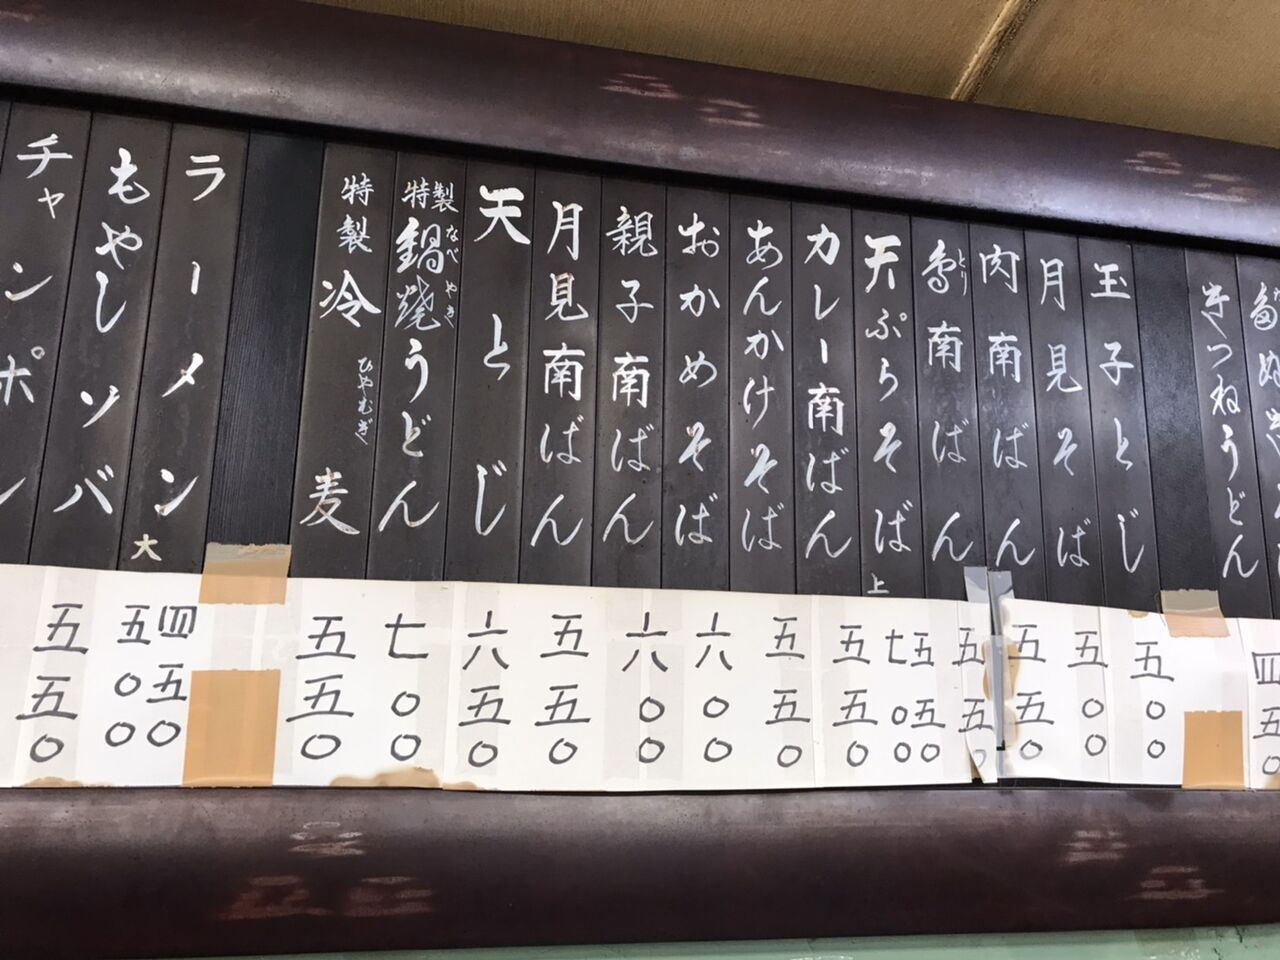 きつねうどん
四五〇
玉子とじ
五〇〇
月見そば
五〇〇
肉南ばん
五五〇
鳥南ばん
とり
五五〇
天ぷらそば
五五〇
上
七〇〇
カレー南ばん
五五〇
あんかけそば
五五〇
おかめそば
六〇〇
親子南ばん
六〇〇
月見南ばん
五五〇
天とじ
六五〇
特製鍋焼うどん
なべやき
七〇〇
特製冷麦
ひやむぎ
五五〇
ラーメン
四五〇
大
五〇〇
もやしソバ
五五〇
チャンポン